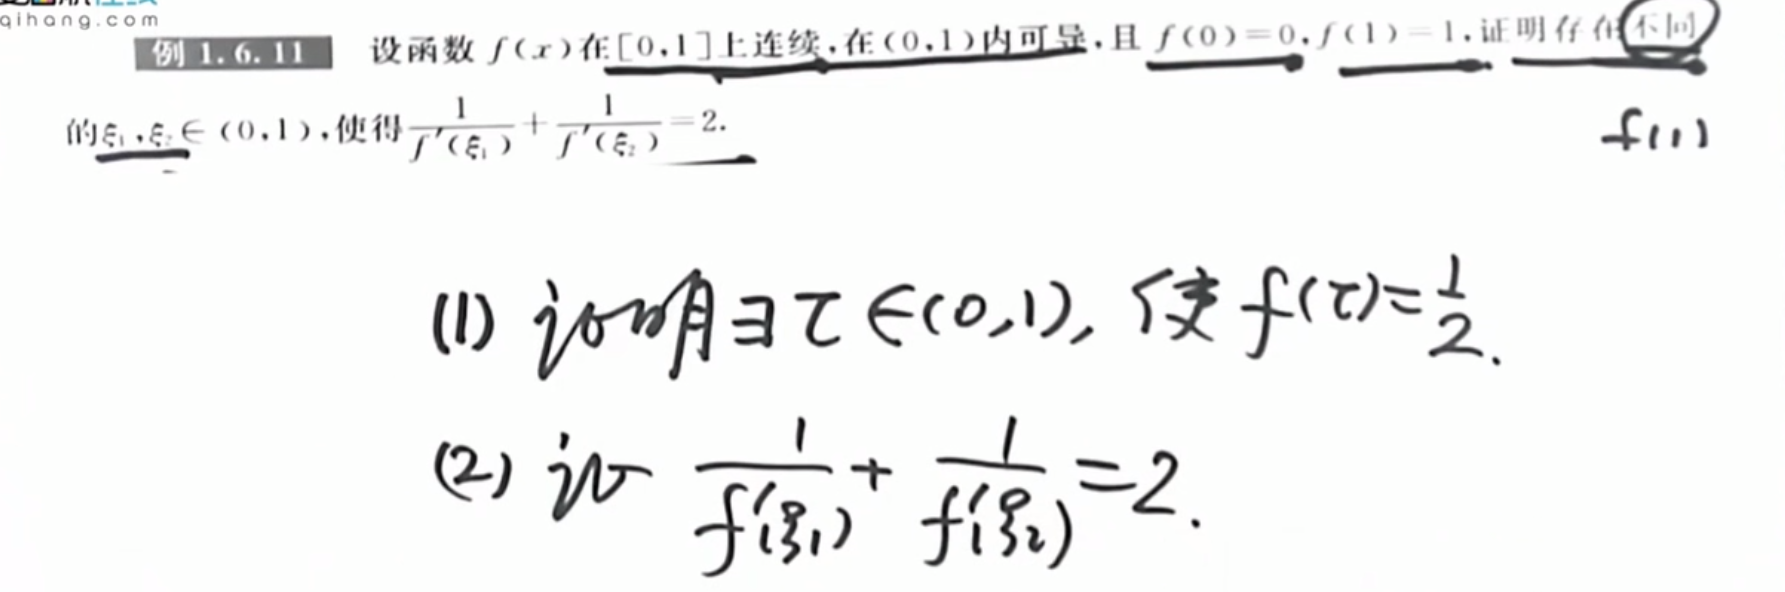 qihang.com
例 1.6.11 设函数 f(x)在[0,1]上连续,在(0,1)内可导,且 f(0)=0,f(1)=1,证明存在不同
的ξ₁,ξ₂∈(0,1),使得 1/f′(ξ₁) + 1/f′(ξ₂) =2.
f(1)
(1) 证明∃τ∈(0,1), 使 f(τ)=1/2.
(2) 证 1/f′(ξ₁) + 1/f′(ξ₂) =2.